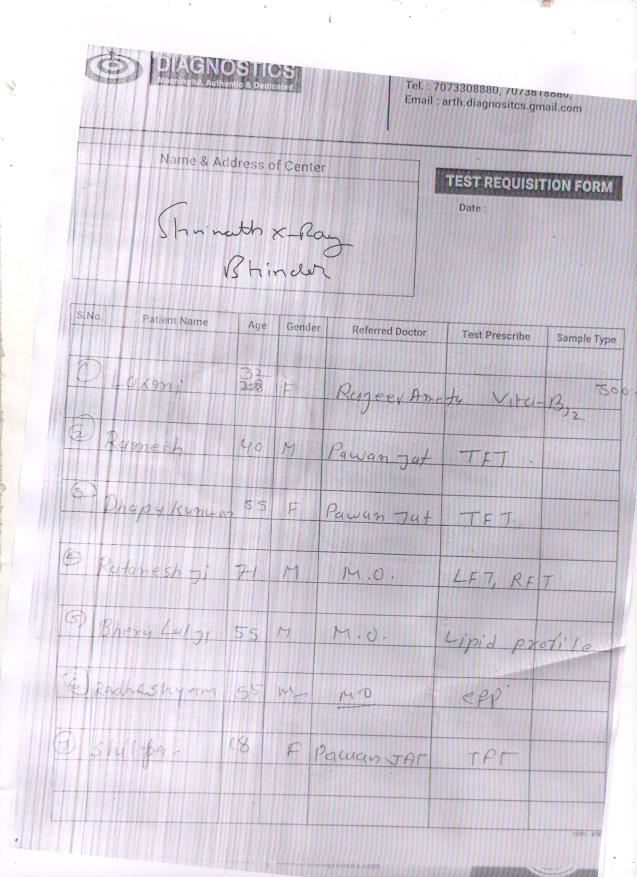 DIAGNOSTICS
Meaningful, Authentic & Dedicated
Tel. : 7073308880, 7073818880,
Email : arth.diagnositcs.gmail.com
Name & Address of Center
TEST REQUISITION FORM
Date :
Shrinath X-Ray
Bhinder
S.No. Patient Name Age Gender Referred Doctor Test Prescribe Sample Type
1 Laxmi 32 28 F Rajeev Ameta Vita-B12 500
2 Ramesh 40 M Pawan Jat TFT
3 Dhapu Kunwar 55 F Pawan Jat TFT
4 Ratanesh Ji 71 M M.O. LFT, RFT
5 Bheru Lal Ji 55 M M.O. Lipid profile
6 Radheshyam 55 M MO
7 Shilpa 18 F Pawan JAT TFT